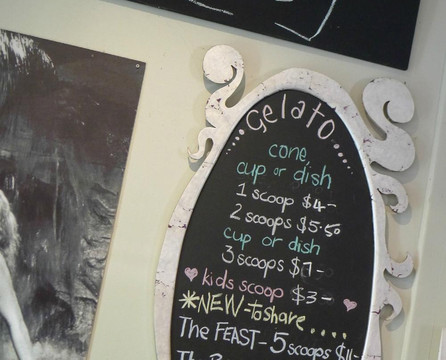 Gelato
cone,
cup or dish
1 scoop $4-
2 scoops $5.50
cup or dish
3 scoops $7-
kids scoop $3-
*NEW-to share....
The FEAST-5 scoops $11-
The